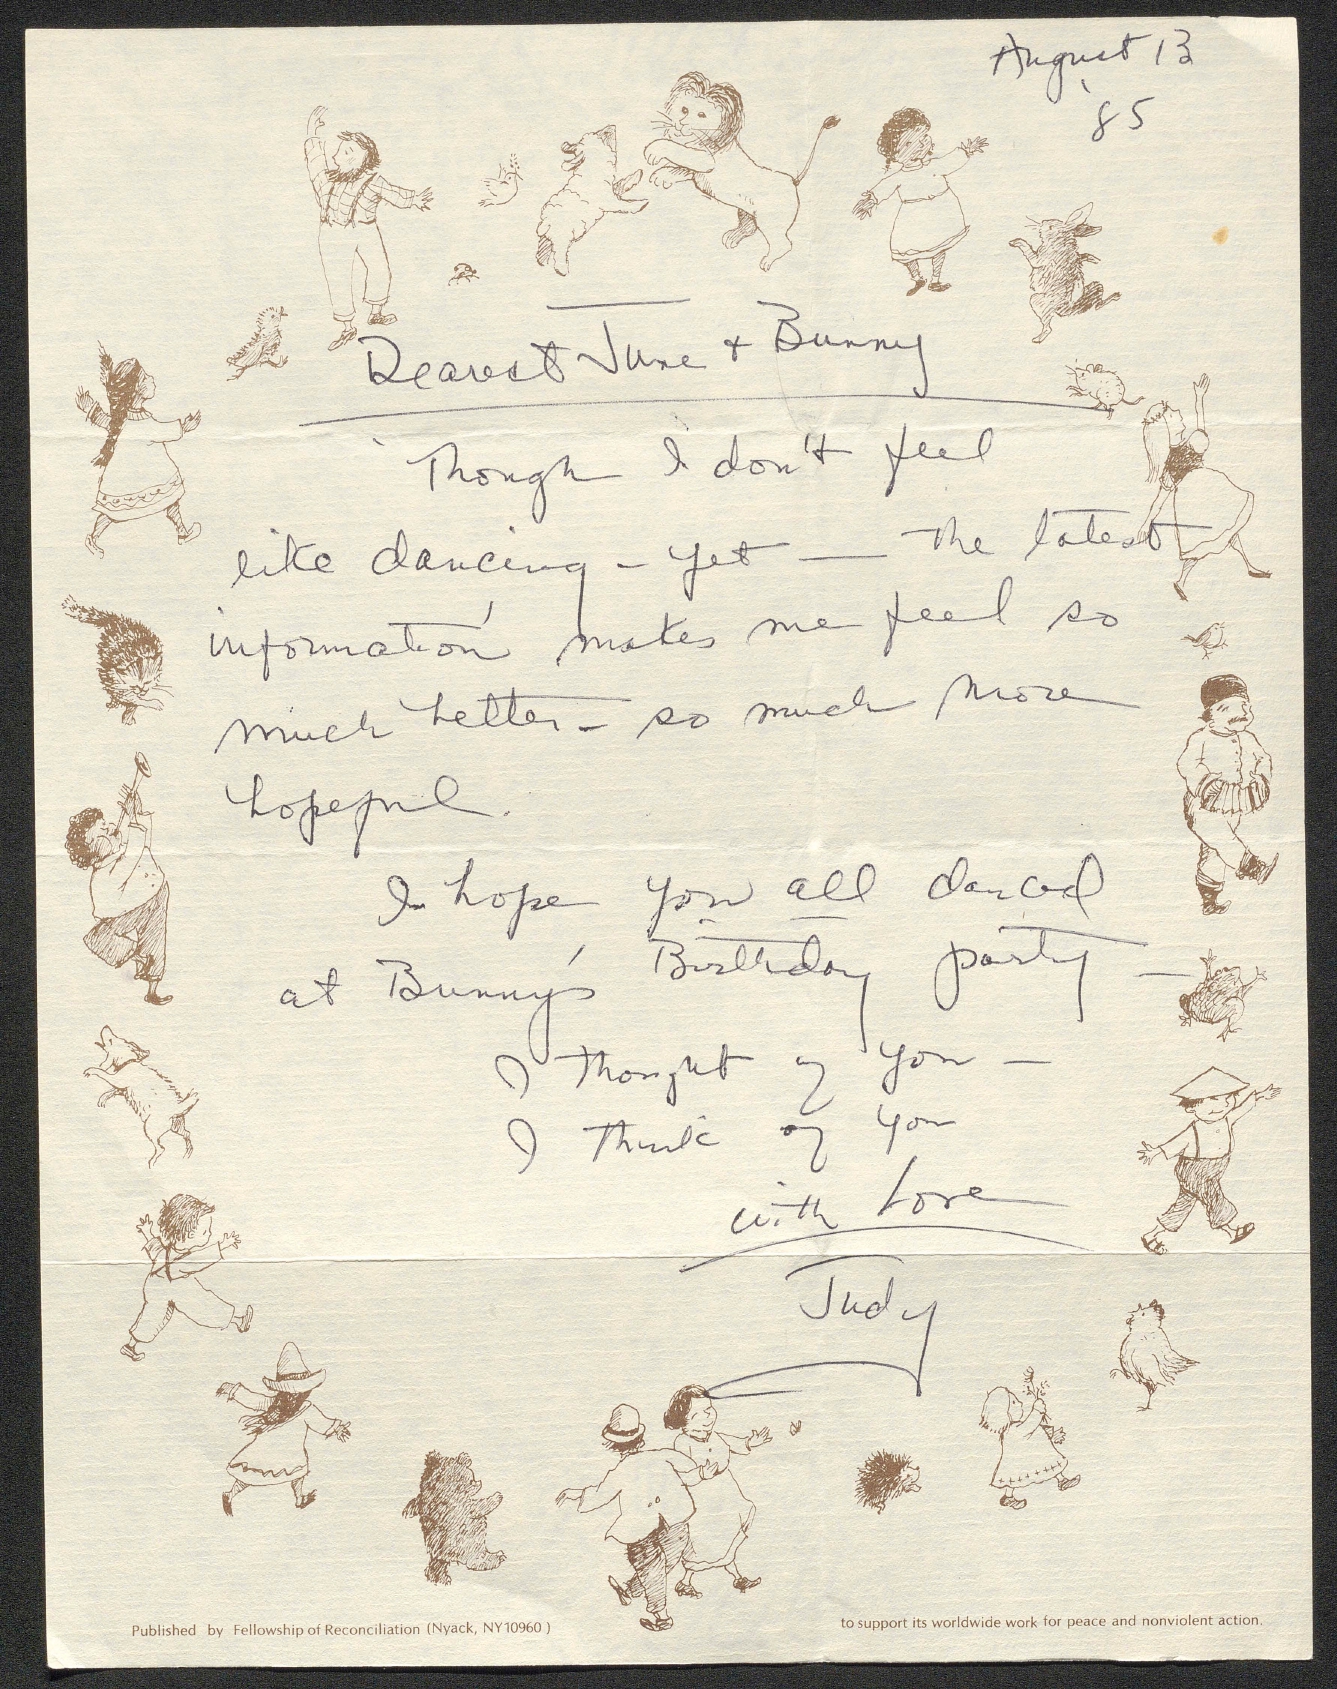 August 13
'85
Dearest June + Bunny
Though I don't feel
like dancing - yet — the latest
information makes me feel so
much better - so much more
hopeful.
I hope you all danced
at Bunny's Birthday party —
I thought of you —
I think of you
with Love
Judy
Published by Fellowship of Reconciliation (Nyack, NY 10960)
to support its worldwide work for peace and nonviolent action.